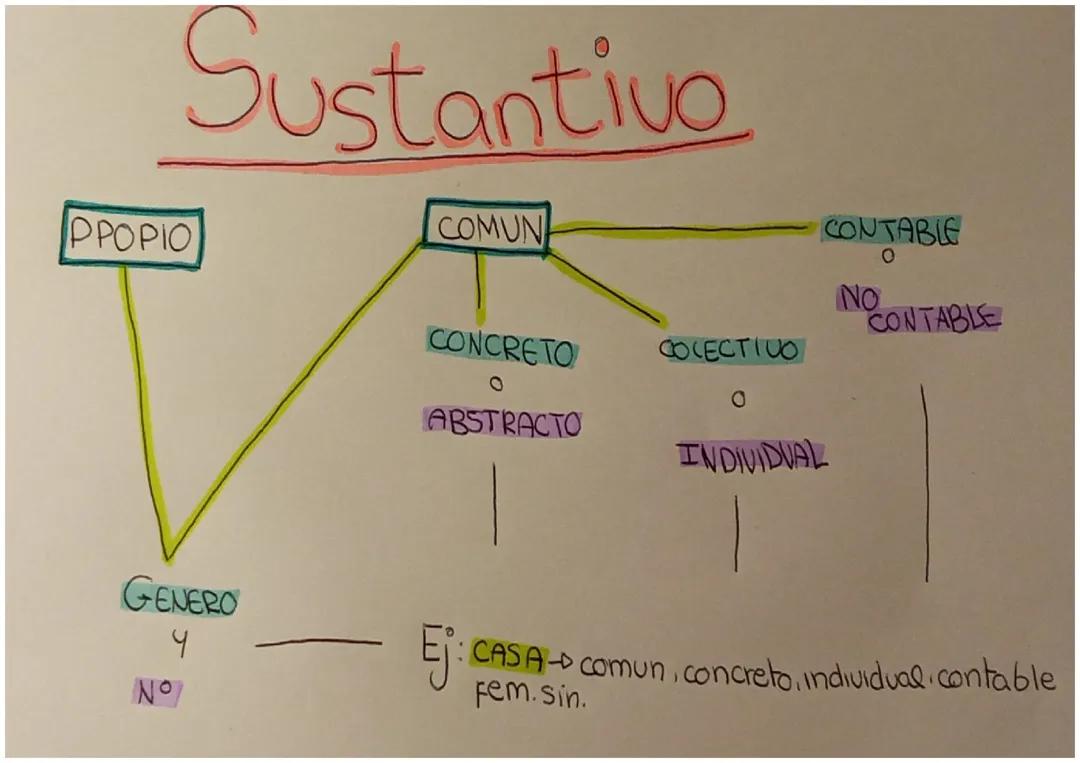 Sustantivo
PPOPIO
COMUN
CONTABLE
o
NO
CONTABLE
CONCRETO
o
ABSTRACTO
COLECTIVO
o
INDIVIDUAL
GENERO
y
Nº
Ej: CASA → comun, concreto, individual, contable
fem. sin.